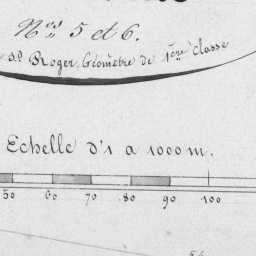 Nos 5 et 6.
Sr Roger, Géomètre de 1ère classe
Echelle d'1 a 1000 m.
50 60 70 80 90 100